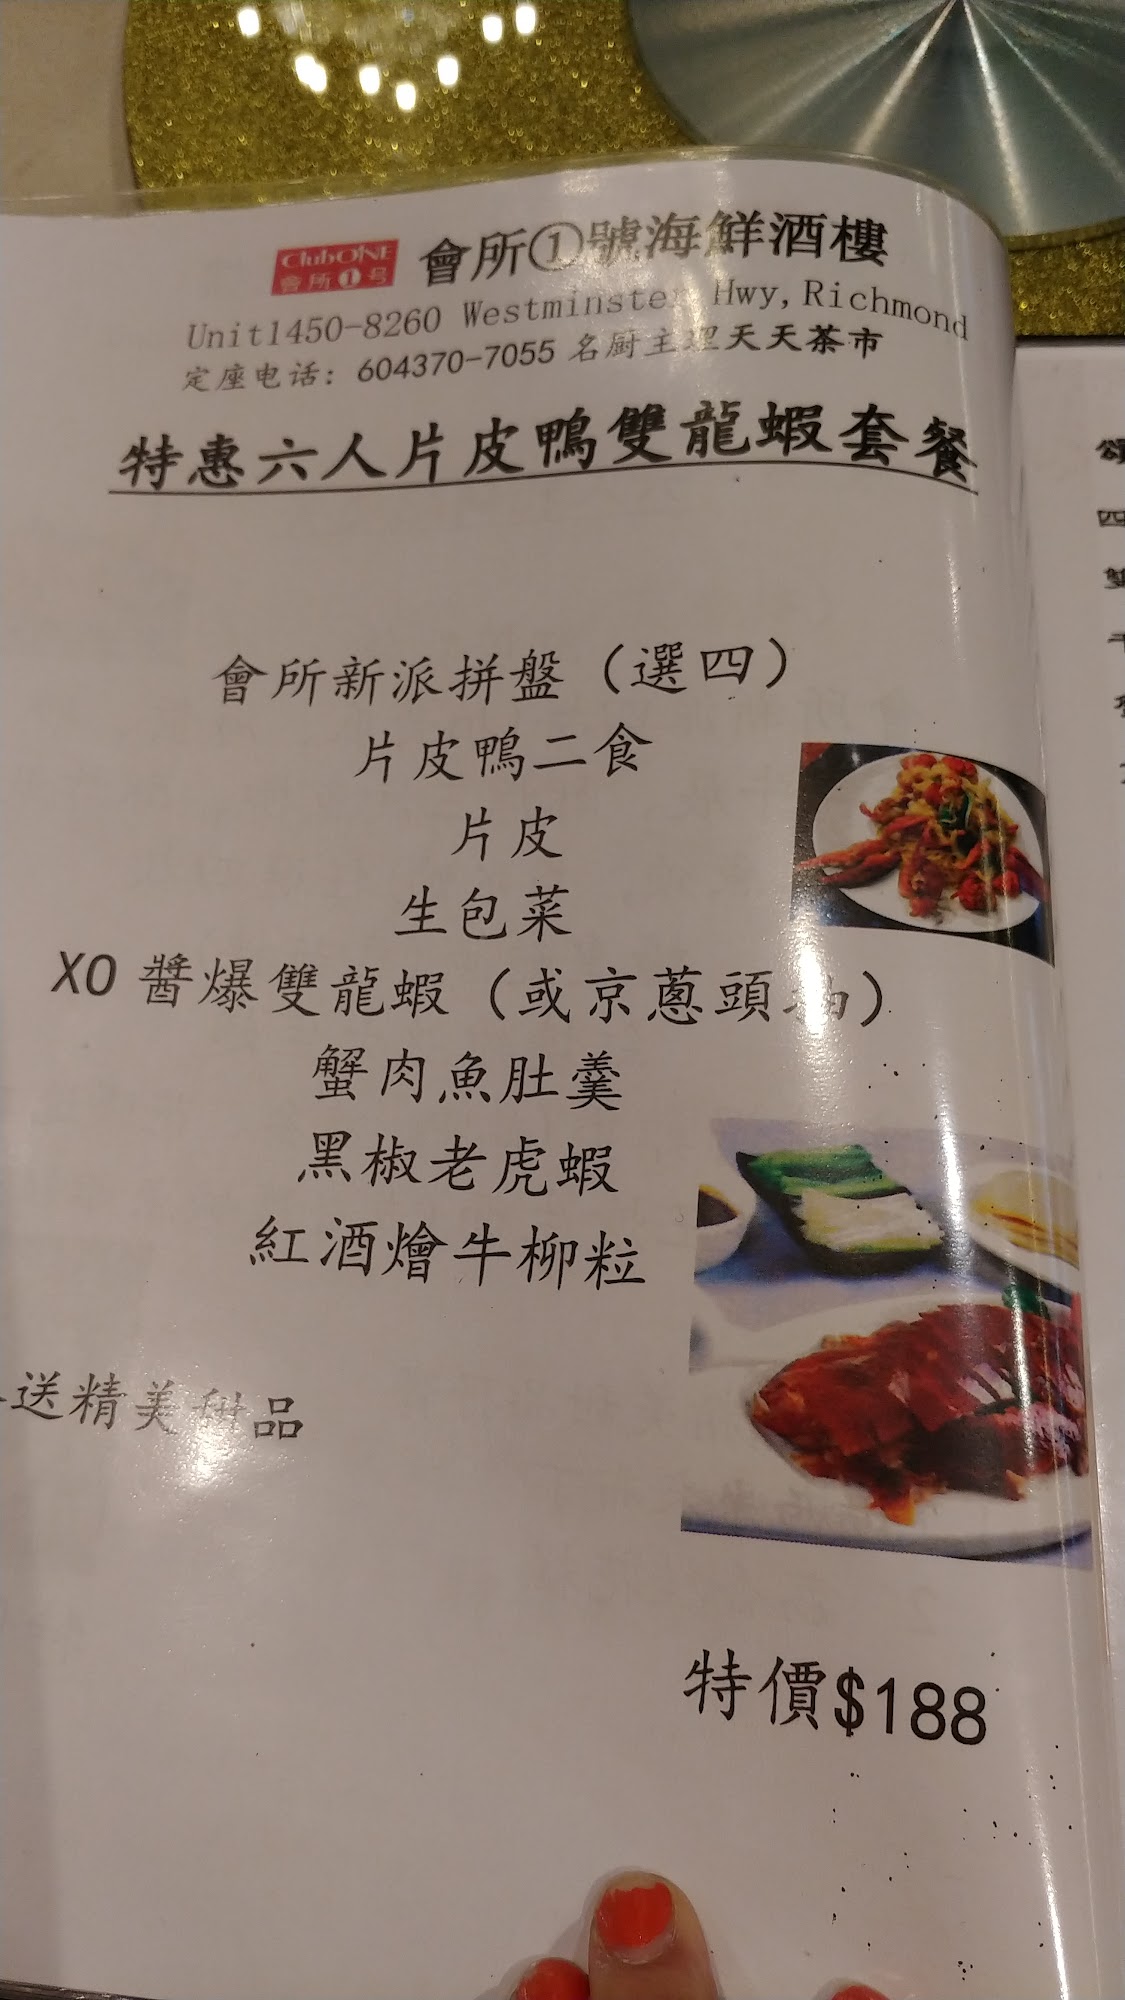 ClubONE
會所❶号
會所①號海鮮酒樓
Unit1450-8260 Westminster Hwy, Richmond
定座电话: 604370-7055 名厨主理天天茶市
特惠六人片皮鴨雙龍蝦套餐
會所新派拼盤（選四）
片皮鴨二食
片皮
生包菜
XO 醬爆雙龍蝦（或京蔥頭抽）
蟹肉魚肚羹
黑椒老虎蝦
紅酒燴牛柳粒
送精美甜品
特價$188
四
雙